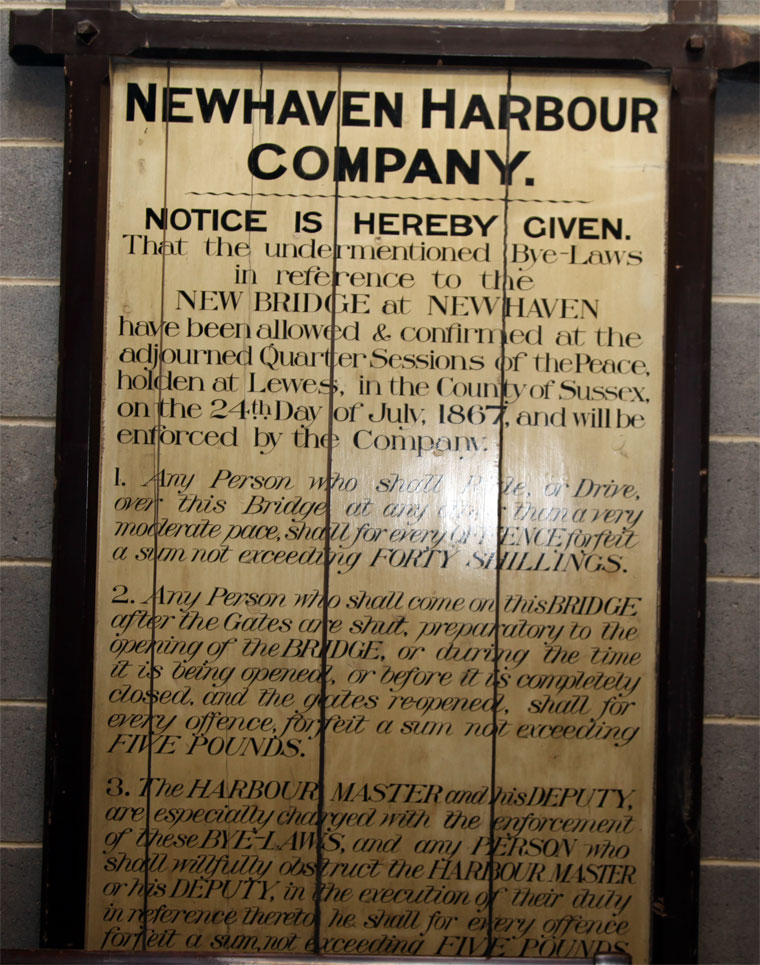 NEWHAVEN HARBOUR
COMPANY.
NOTICE IS HEREBY GIVEN.
That the undermentioned Bye-Laws
in reference to the
NEW BRIDGE at NEWHAVEN
have been allowed & confirmed at the
adjourned Quarter Sessions of the Peace,
holden at Lewes, in the County of Sussex,
on the 24th Day of July, 1867, and will be
enforced by the Company.
1. Any Person who shall Ride, or Drive,
over this Bridge, at any other than a very
moderate pace, shall for every OFFENCE forfeit
a sum not exceeding FORTY SHILLINGS.
2. Any Person who shall come on this BRIDGE
after the Gates are shut, preparatory to the
opening of the BRIDGE, or during the time
it is being opened, or before it is completely
closed, and the gates re-opened, shall for
every offence, forfeit a sum not exceeding
FIVE POUNDS.
3. The HARBOUR MASTER and his DEPUTY,
are especially charged with the enforcement
of these BYE-LAWS, and any PERSON who
shall willfully obstruct the HARBOUR MASTER
or his DEPUTY, in the execution of their duty
in reference thereto, he shall for every offence
forfeit a sum, not exceeding FIVE POUNDS